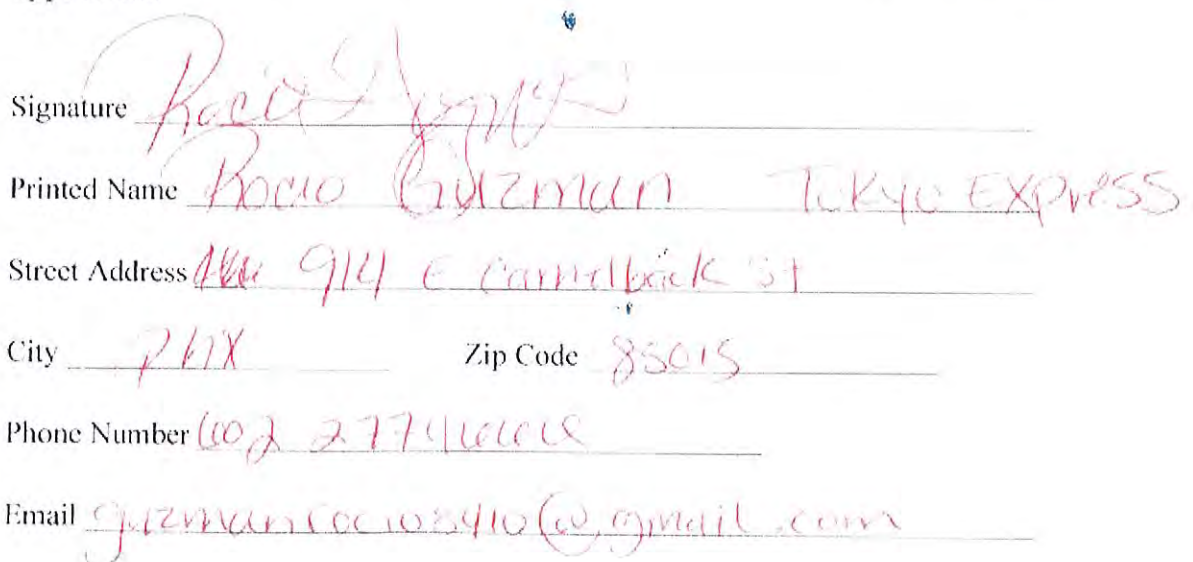 Signature Rocio Guzman
Printed Name Rocio Guzman Tokyo EXpress
Street Address 914 E Camelback St
City PHX Zip Code 85015
Phone Number 602 2774666
Email guzmanrocio8410@gmail.com